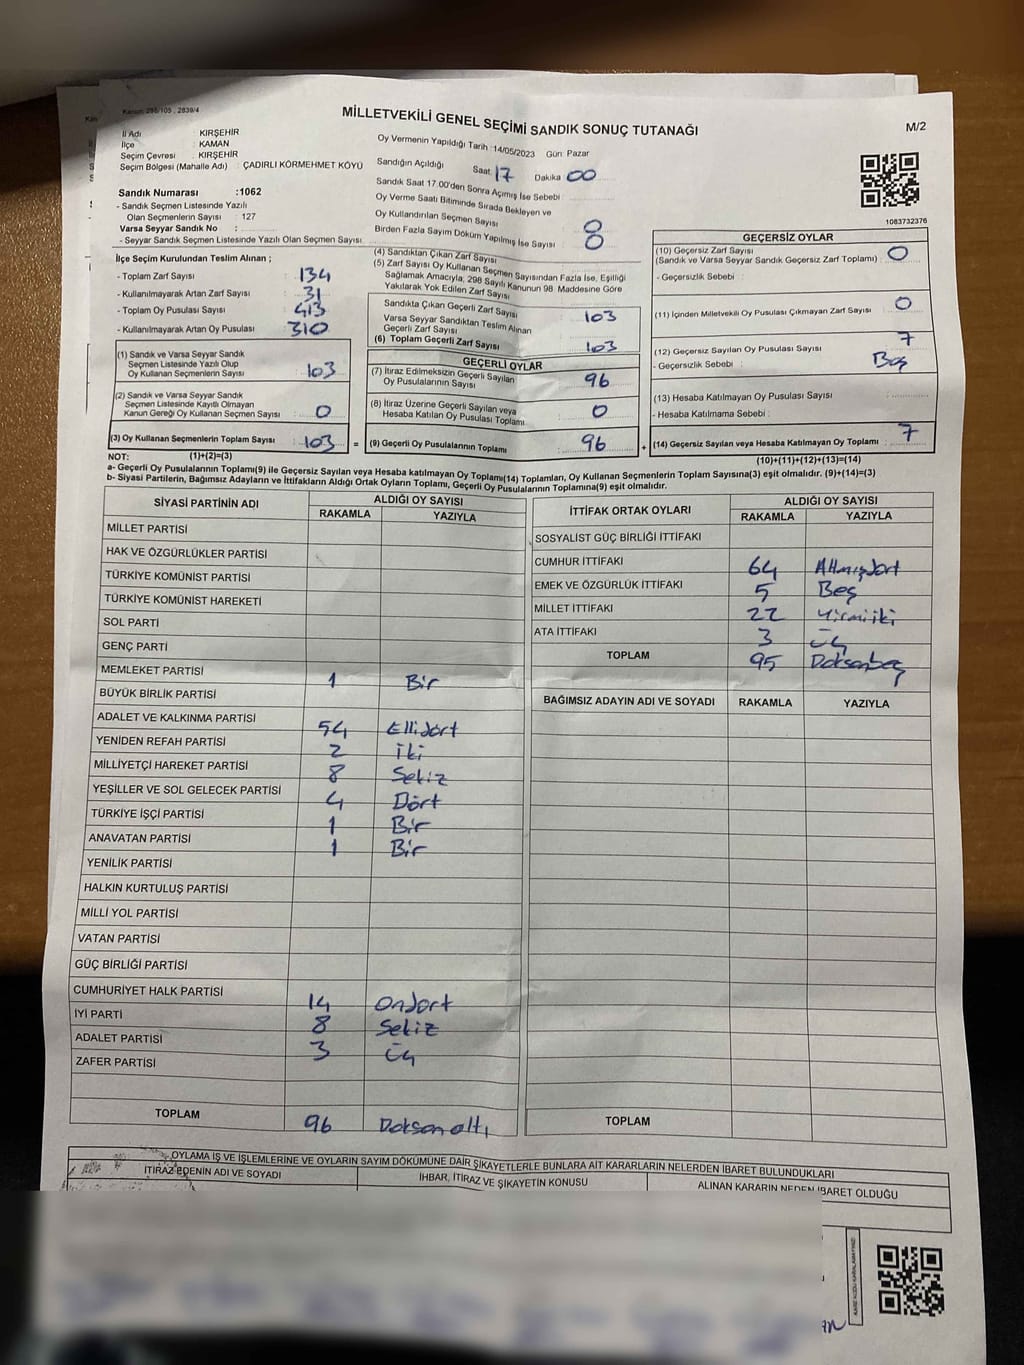 Kanun: 298/105 , 2839/4
MİLLETVEKİLİ GENEL SEÇİMİ SANDIK SONUÇ TUTANAĞI
M/2
İl Adı : KIRŞEHİR
İlçe : KAMAN
Seçim Çevresi : KIRŞEHİR
Seçim Bölgesi (Mahalle Adı) : ÇADIRLI KÖRMEHMET KÖYÜ
Sandık Numarası :1062
- Sandık Seçmen Listesinde Yazılı
Olan Seçmenlerin Sayısı : 127
Varsa Seyyar Sandık No :
- Seyyar Sandık Seçmen Listesinde Yazılı Olan Seçmen Sayısı
Oy Vermenin Yapıldığı Tarih :14/05/2023 Gün: Pazar
Sandığın Açıldığı Saat 17 Dakika 00
Sandık Saat 17.00'den Sonra Açılmış İse Sebebi
Oy Verme Saati Bitiminde Sırada Bekleyen ve
Oy Kullandırılan Seçmen Sayısı 0
Birden Fazla Sayım Döküm Yapılmış İse Sayısı 0
1083732376
İlçe Seçim Kurulundan Teslim Alınan ;
- Toplam Zarf Sayısı : 134
- Kullanılmayarak Artan Zarf Sayısı : 31
- Toplam Oy Pusulası Sayısı : 413
- Kullanılmayarak Artan Oy Pusulası : 310
(1) Sandık ve Varsa Seyyar Sandık
Seçmen Listesinde Yazılı Olup
Oy Kullanan Seçmenlerin Sayısı : 103
(2) Sandık ve Varsa Seyyar Sandık
Seçmen Listesinde Kayıtlı Olmayan
Kanun Gereği Oy Kullanan Seçmen Sayısı : 0
(3) Oy Kullanan Seçmenlerin Toplam Sayısı : 103 =
(4) Sandıktan Çıkan Zarf Sayısı
(5) Zarf Sayısı Oy Kullanan Seçmen Sayısından Fazla İse, Eşitliği
Sağlamak Amacıyla, 298 Sayılı Kanunun 98. Maddesine Göre
Yakılarak Yok Edilen Zarf Sayısı
Sandıkta Çıkan Geçerli Zarf Sayısı : 103
Varsa Seyyar Sandıktan Teslim Alınan
Geçerli Zarf Sayısı
(6) Toplam Geçerli Zarf Sayısı : 103
GEÇERLİ OYLAR
(7) İtiraz Edilmeksizin Geçerli Sayılan
Oy Pusulalarının Sayısı : 96
(8) İtiraz Üzerine Geçerli Sayılan veya
Hesaba Katılan Oy Pusulası Toplamı : 0
(9) Geçerli Oy Pusulalarının Toplamı : 96 +
GEÇERSİZ OYLAR
(10) Geçersiz Zarf Sayısı
(Sandık ve Varsa Seyyar Sandık Geçersiz Zarf Toplamı) : 0
- Geçersizlik Sebebi :
(11) İçinden Milletvekili Oy Pusulası Çıkmayan Zarf Sayısı : 0
(12) Geçersiz Sayılan Oy Pusulası Sayısı : 7
- Geçersizlik Sebebi : Boş
(13) Hesaba Katılmayan Oy Pusulası Sayısı :
- Hesaba Katılmama Sebebi :
(14) Geçersiz Sayılan veya Hesaba Katılmayan Oy Toplamı : 7
NOT: (1)+(2)=(3)
(10)+(11)+(12)+(13)=(14)
a- Geçerli Oy Pusulalarının Toplamı(9) ile Geçersiz Sayılan veya Hesaba katılmayan Oy Toplamı(14) Toplamları, Oy Kullanan Seçmenlerin Toplam Sayısına(3) eşit olmalıdır. (9)+(14)=(3)
b- Siyasi Partilerin, Bağımsız Adayların ve İttifakların Aldığı Ortak Oyların Toplamı, Geçerli Oy Pusulalarının Toplamına(9) eşit olmalıdır.
SİYASİ PARTİNİN ADI ALDIĞI OY SAYISI
RAKAMLA YAZIYLA
MİLLET PARTİSİ
HAK VE ÖZGÜRLÜKLER PARTİSİ
TÜRKİYE KOMÜNİST PARTİSİ
TÜRKİYE KOMÜNİST HAREKETİ
SOL PARTİ
GENÇ PARTİ
MEMLEKET PARTİSİ 1 Bir
BÜYÜK BİRLİK PARTİSİ
ADALET VE KALKINMA PARTİSİ 54 Ellidört
YENİDEN REFAH PARTİSİ 2 iki
MİLLİYETÇİ HAREKET PARTİSİ 8 Sekiz
YEŞİLLER VE SOL GELECEK PARTİSİ 4 Dört
TÜRKİYE İŞÇİ PARTİSİ 1 Bir
ANAVATAN PARTİSİ 1 Bir
YENİLİK PARTİSİ
HALKIN KURTULUŞ PARTİSİ
MİLLİ YOL PARTİSİ
VATAN PARTİSİ
GÜÇ BİRLİĞİ PARTİSİ
CUMHURİYET HALK PARTİSİ 14 ondört
İYİ PARTİ 8 Sekiz
ADALET PARTİSİ 3 Üç
ZAFER PARTİSİ
TOPLAM 96 Doksan altı
İTTİFAK ORTAK OYLARI ALDIĞI OY SAYISI
RAKAMLA YAZIYLA
SOSYALİST GÜÇ BİRLİĞİ İTTİFAKI
CUMHUR İTTİFAKI 64 Altmışdört
EMEK VE ÖZGÜRLÜK İTTİFAKI 5 Beş
MİLLET İTTİFAKI 22 yirmiiki
ATA İTTİFAKI 3 üç
TOPLAM 95 Doksanbeş
BAĞIMSIZ ADAYIN ADI VE SOYADI RAKAMLA YAZIYLA
TOPLAM
OYLAMA İŞ VE İŞLEMLERİNE VE OYLARIN SAYIM DÖKÜMÜNE DAİR ŞİKAYETLERLE BUNLARA AİT KARARLARIN NELERDEN İBARET BULUNDUKLARI
İTİRAZ EDENİN ADI VE SOYADI İHBAR, İTİRAZ VE ŞİKAYETİN KONUSU ALINAN KARARIN NEDEN İBARET OLDUĞU